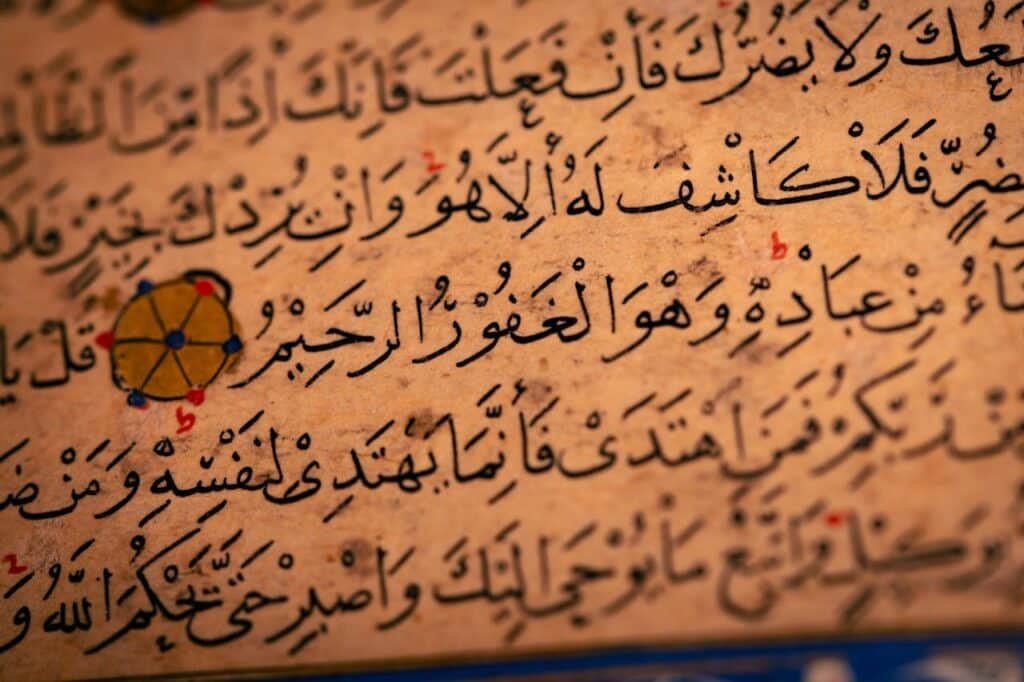 وَلَا يَضُرُّكَ فَاِنْ فَعَلْتَ فَاِنَّكَ اِذًا مِنَ
فَلَا كَاشِفَ لَهُٓ اِلَّا هُوَ وَاِنْ يُرِدْكَ بِخَيْرٍ فَلَا
مِنْ عِبَادِهٖ وَهُوَ الْغَفُورُ الرَّحِيْمُ قُلْ يَا
مِنْ رَبِّكُمْ فَمَنِ اهْتَدَىْ فَاِنَّمَا يَهْتَدِىْ لِنَفْسِهٖ وَمَنْ
بِوَكِيْلٍ وَاتَّبِعْ مَا يُوحٰى اِلَيْكَ وَاصْبِرْ حَتّٰى يَحْكُمَ اللّٰهُ وَ